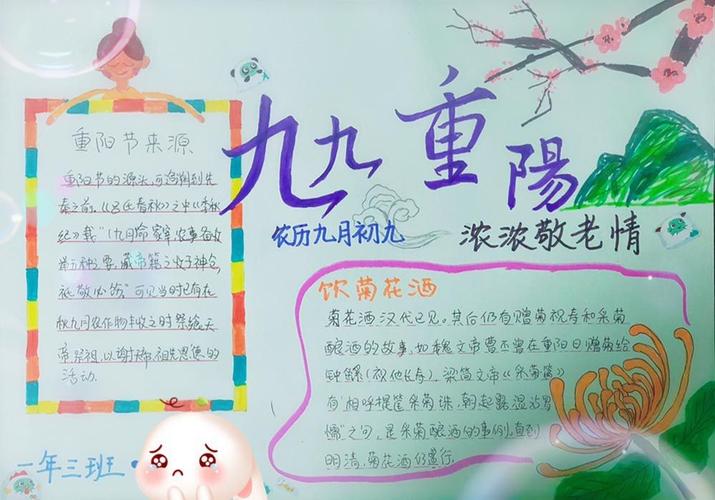 九九重陽
农历九月初九
浓浓敬老情
重阳节来源
重阳节的源头,可追溯到先
秦之前。《吕氏春秋》之中《季秋
纪》载"(九月)命家宰,农事备收,
举五种之要。藏帝籍之收于神仓,
祗敬必饬。"可见当时已有在
秋九月农作物丰收之时祭飨天
帝祭祖,以谢天帝、祖先恩德的
活动.
饮菊花酒
菊花酒汉代已见。其后仍有赠菊祝寿和采菊
酿酒的故事,如魏文帝曹丕曾在重阳日赠菊给
钟繇(祝他长寿).梁简文帝《采菊篇》
有"相呼提筐采菊珠,朝起露湿沾罗
襦"之句,是采菊酿酒的事例。直到
明清,菊花酒仍盛行.
一年三班